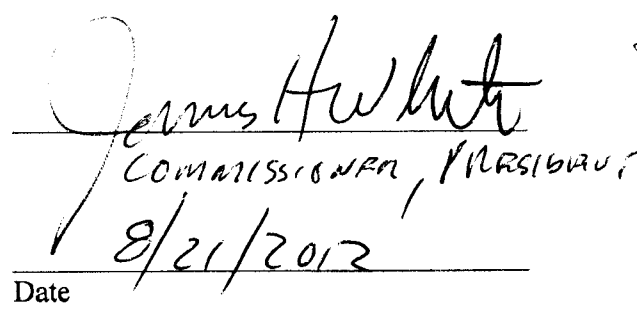 James H White
COMMISSIONER, PRESIDENT
8/21/2012
Date